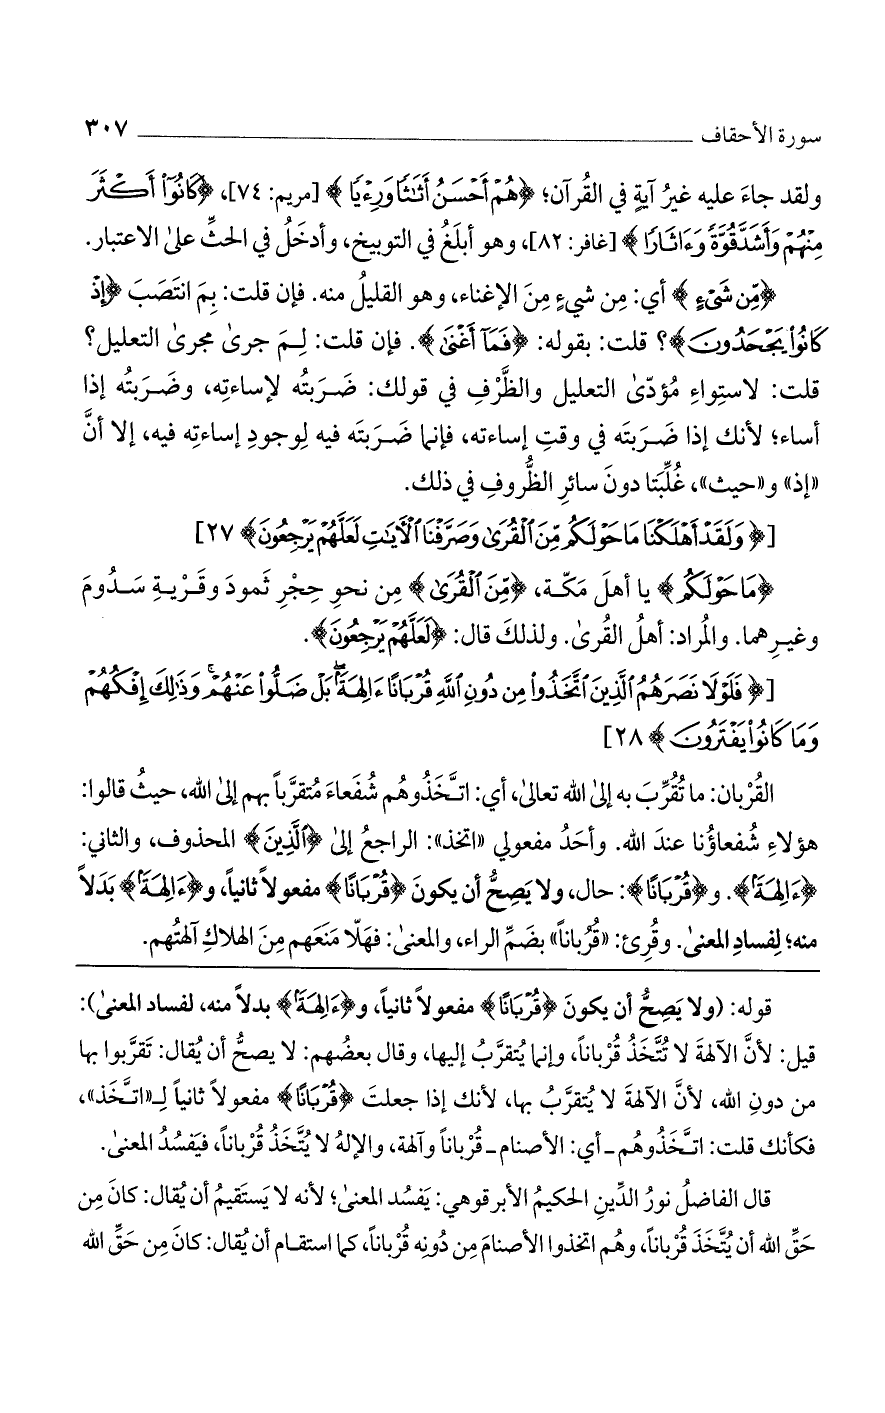 سورة الأحقاف ٣٠٧
ولقد جاءَ عليه غيرُ آيةٍ في القُرآن؛ ﴿هُمْ أَحْسَنُ أَثَاثًا وَرِءْيًا﴾ [مريم: ٧٤]، ﴿كَانُوٓا۟ أَكْثَرَ
مِنْهُمْ وَأَشَدَّ قُوَّةً وَءَاثَارًا﴾ [غافر: ٨٢]، وهو أبلَغُ في التوبيخ، وأدخَلُ في الحثِّ علىٰ الاعتبار.
﴿مِّن شَىْءٍ﴾ أي: مِن شيءٍ مِنَ الإغناء، وهو القليلُ منه. فإن قلت: بِمَ انتَصَبَ ﴿إِذْ
كَانُوا۟ يَجْحَدُونَ﴾؟ قلت: بقوله: ﴿فَمَآ أَغْنَىٰ﴾. فإن قلت: لِـمَ جرىٰ مجرىٰ التعليل؟
قلت: لاستِواءِ مُؤدّىٰ التعليل والظَّرْفِ في قولك: ضَـرَبتُه لإساءتِه، وضَـرَبتُه إذا
أساء؛ لأنك إذا ضَـرَبتَه في وقتِ إساءته، فإنما ضَـرَبتَه فيه لِوجودِ إساءتِه فيه، إلا أنَّ
«إذ» و«حيث»، غُلِّبَتا دونَ سائرِ الظُّروفِ في ذلك.
[﴿وَلَقَدْ أَهْلَكْنَا مَا حَوْلَكُم مِّنَ ٱلْقُرَىٰ وَصَرَّفْنَا ٱلْـَٔايَـٰتِ لَعَلَّهُمْ يَرْجِعُونَ﴾ ٢٧]
﴿مَا حَوْلَكُم﴾ يا أهلَ مَكّـة، ﴿مِّنَ ٱلْقُرَىٰ﴾ مِن نحوِ حِجْرِ ثَمودَ وقَـرْيـةِ سَـدُومَ
وغيـرِهما. والمُراد: أهلُ القُرىٰ. ولذلكَ قال: ﴿لَعَلَّهُمْ يَرْجِعُونَ﴾.
[﴿فَلَوْلَا نَصَرَهُمُ ٱلَّذِينَ ٱتَّخَذُوا۟ مِن دُونِ ٱللَّهِ قُرْبَانًا ءَالِهَةَۢ ۖ بَلْ ضَلُّوا۟ عَنْهُمْ ۚ وَذَٰلِكَ إِفْكُهُمْ
وَمَا كَانُوا۟ يَفْتَرُونَ﴾ ٢٨]
القُرْبان: ما تُقُرِّبَ به إلىٰ الله تعالىٰ، أي: اتـَّخَذُوهُم شُفَعاءَ مُتقرَّباً بهم إلىٰ الله، حيثُ قالوا:
هؤلاءِ شُفعاؤُنا عندَ الله. وأحَدُ مفعولي «اتخذ»: الراجعُ إلىٰ ﴿ٱلَّذِينَ﴾ المحذوف، والثاني:
﴿ءَالِهَةَۢ﴾. و﴿قُرْبَانًا﴾: حال، ولا يَصِحُّ أن يكونَ ﴿قُرْبَانًا﴾ مفعولاً ثانياً، و﴿ءَالِهَةَۢ﴾ بَدَلاً
منه؛ لِفسادِ المعنىٰ. وقُرِئ: «قُرُباناً» بضَمِّ الراء، والمعنىٰ: فهَلّا مَنَعَهم مِنَ الهلاكِ آلهتُهم.
قوله: (ولا يَصِحُّ أن يكونَ ﴿قُرْبَانًا﴾ مفعولاً ثانياً، و﴿ءَالِهَةَۢ﴾ بدلاً منه، لفساد المعنىٰ):
قيل: لأنَّ الآلهةَ لا تُتَّخَذُ قُرْباناً، وإنما يُتقرَّبُ إليها، وقال بعضُهم: لا يصحُّ أن يُقال: تَقرَّبوا بها
من دونِ الله، لأنَّ الآلهةَ لا يُتقرَّبُ بها، لأنك إذا جعلتَ ﴿قُرْبَانًا﴾ مفعولاً ثانياً لِـ«اتـَّخَذ»،
فكأنك قلت: اتـَّخَذُوهُم ـ أي: الأصنام ـ قُرْباناً وآلهة، والإلهُ لا يُتَّخَذُ قُرْباناً، فيَفسُدُ المعنىٰ.
قال الفاضلُ نورُ الدِّينِ الحكيمُ الأبرقوهي: يَفسُد المعنىٰ؛ لأنه لا يَستَقيمُ أن يُقال: كانَ مِن
حَقِّ الله أن يُتَّخَذَ قُرْباناً، وهُم اتخذوا الأصنامَ مِن دُونِه قُرْباناً، كما استقـام أن يُقال: كانَ مِن حَقِّ الله